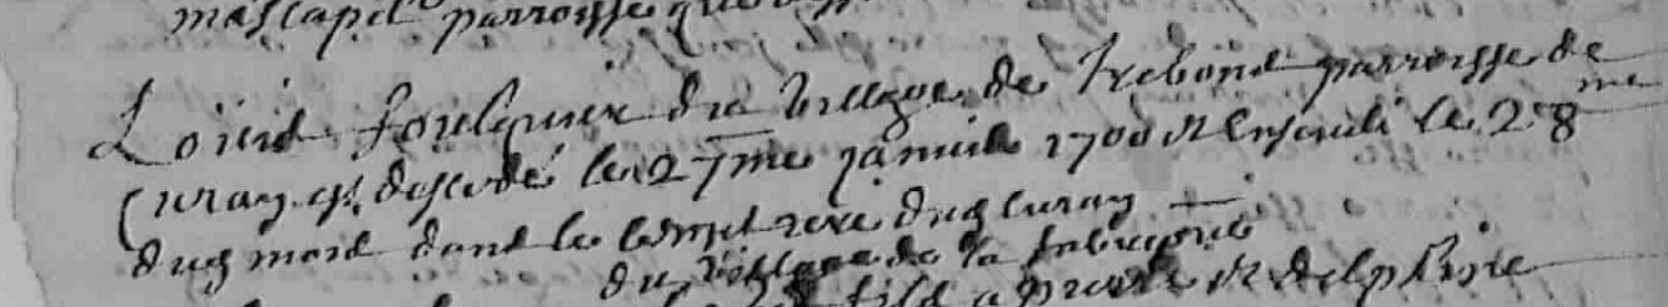 parroisse
Loüis foulquier du village de Trebons parroisse de
Curan est descedé le 27me janvier 1700 et enseveli le 28me
dud mois dans le cemetiere dud Curan
du village de la fabregue
fils a et delphine